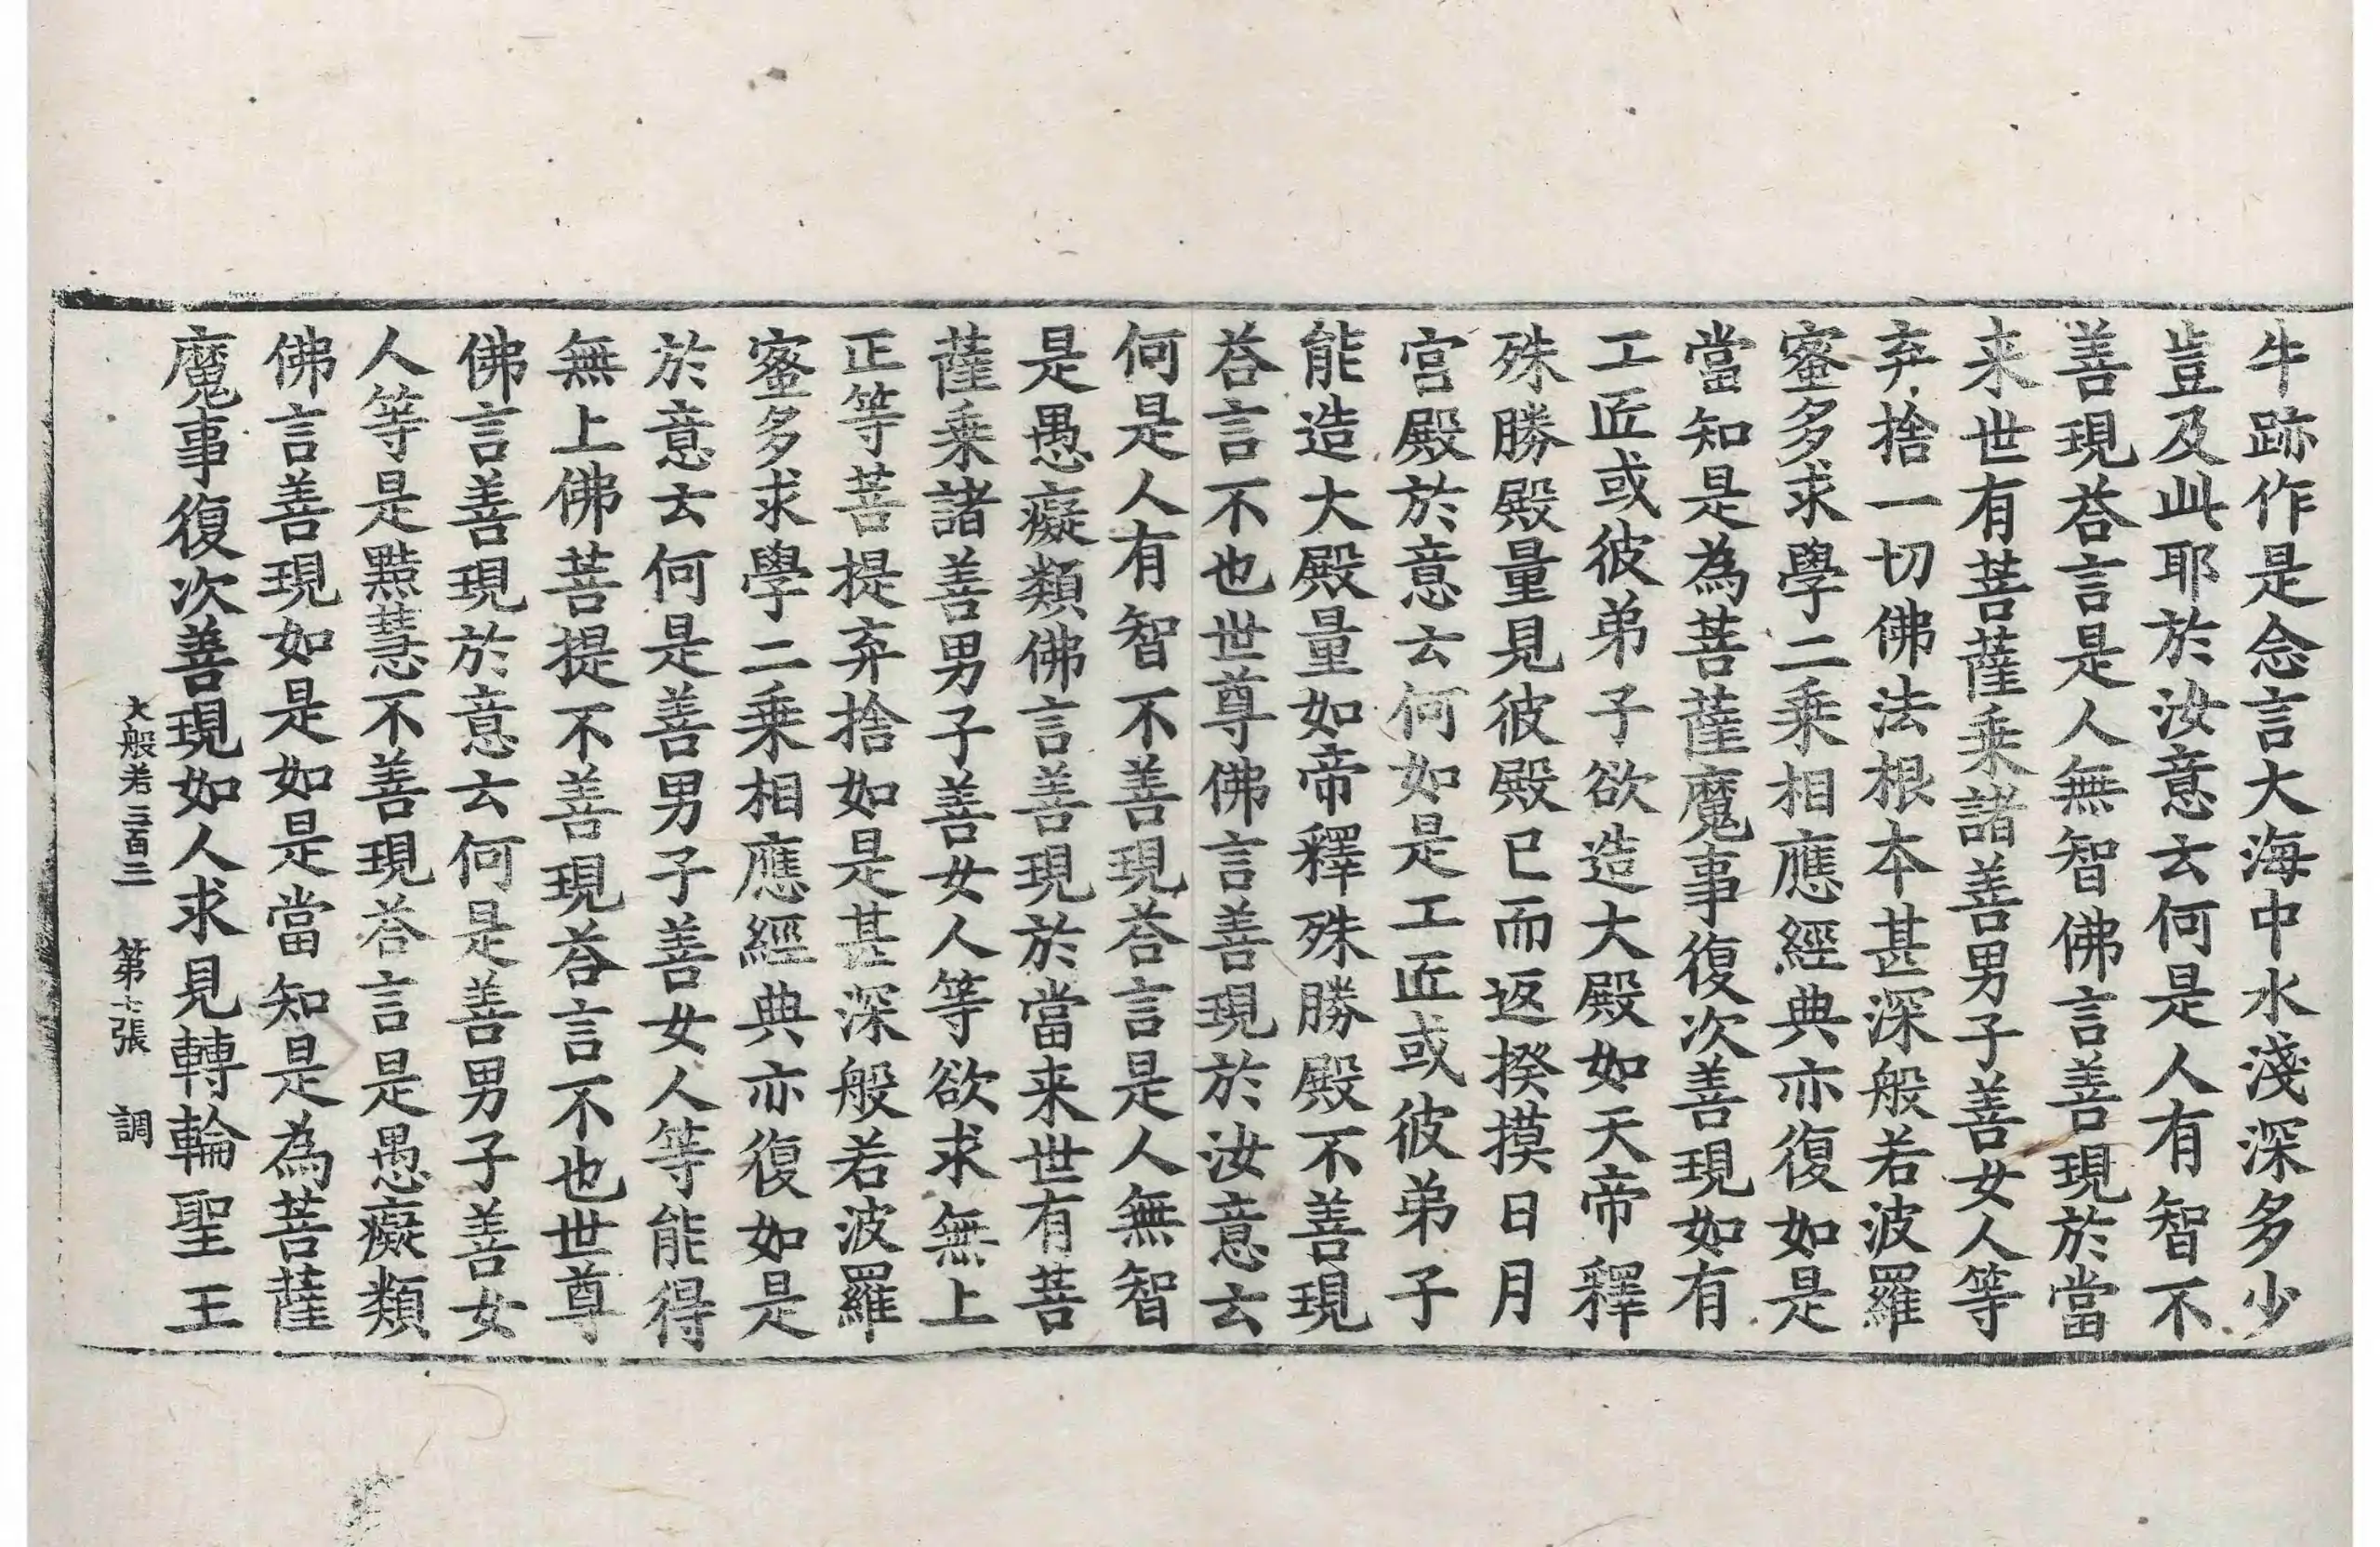 牛跡作是念言大海中水淺深多少
豈及此耶於汝意云何是人有智不
善現荅言是人無智佛言善現於當
来世有菩薩乗諸善男子善女人等
弃捨一切佛法根本甚深般若波羅
蜜多求學二乗相應經典亦復如是
當知是為菩薩魔事復次善現如有
工匠或彼弟子欲造大殿如天帝釋
殊勝殿量見彼殿已而返揆摸日月
宫殿於意云何如是工匠或彼弟子
能造大殿量如帝釋殊勝殿不善現
荅言不也世尊佛言善現於汝意云
何是人有智不善現荅言是人無智
是愚癡類佛言善現於當来世有菩
薩乗諸善男子善女人等欲求無上
正等菩提弃捨如是甚深般若波羅
蜜多求學二乗相應經典亦復如是
於意云何是善男子善女人等能得
無上佛菩提不善現荅言不也世尊
佛言善現於意云何是善男子善女
人等是黠慧不善現荅言是愚癡類
佛言善現如是如是當知是為菩薩
魔事復次善現如人求見轉輪聖王
大般若三百三 第十張 調